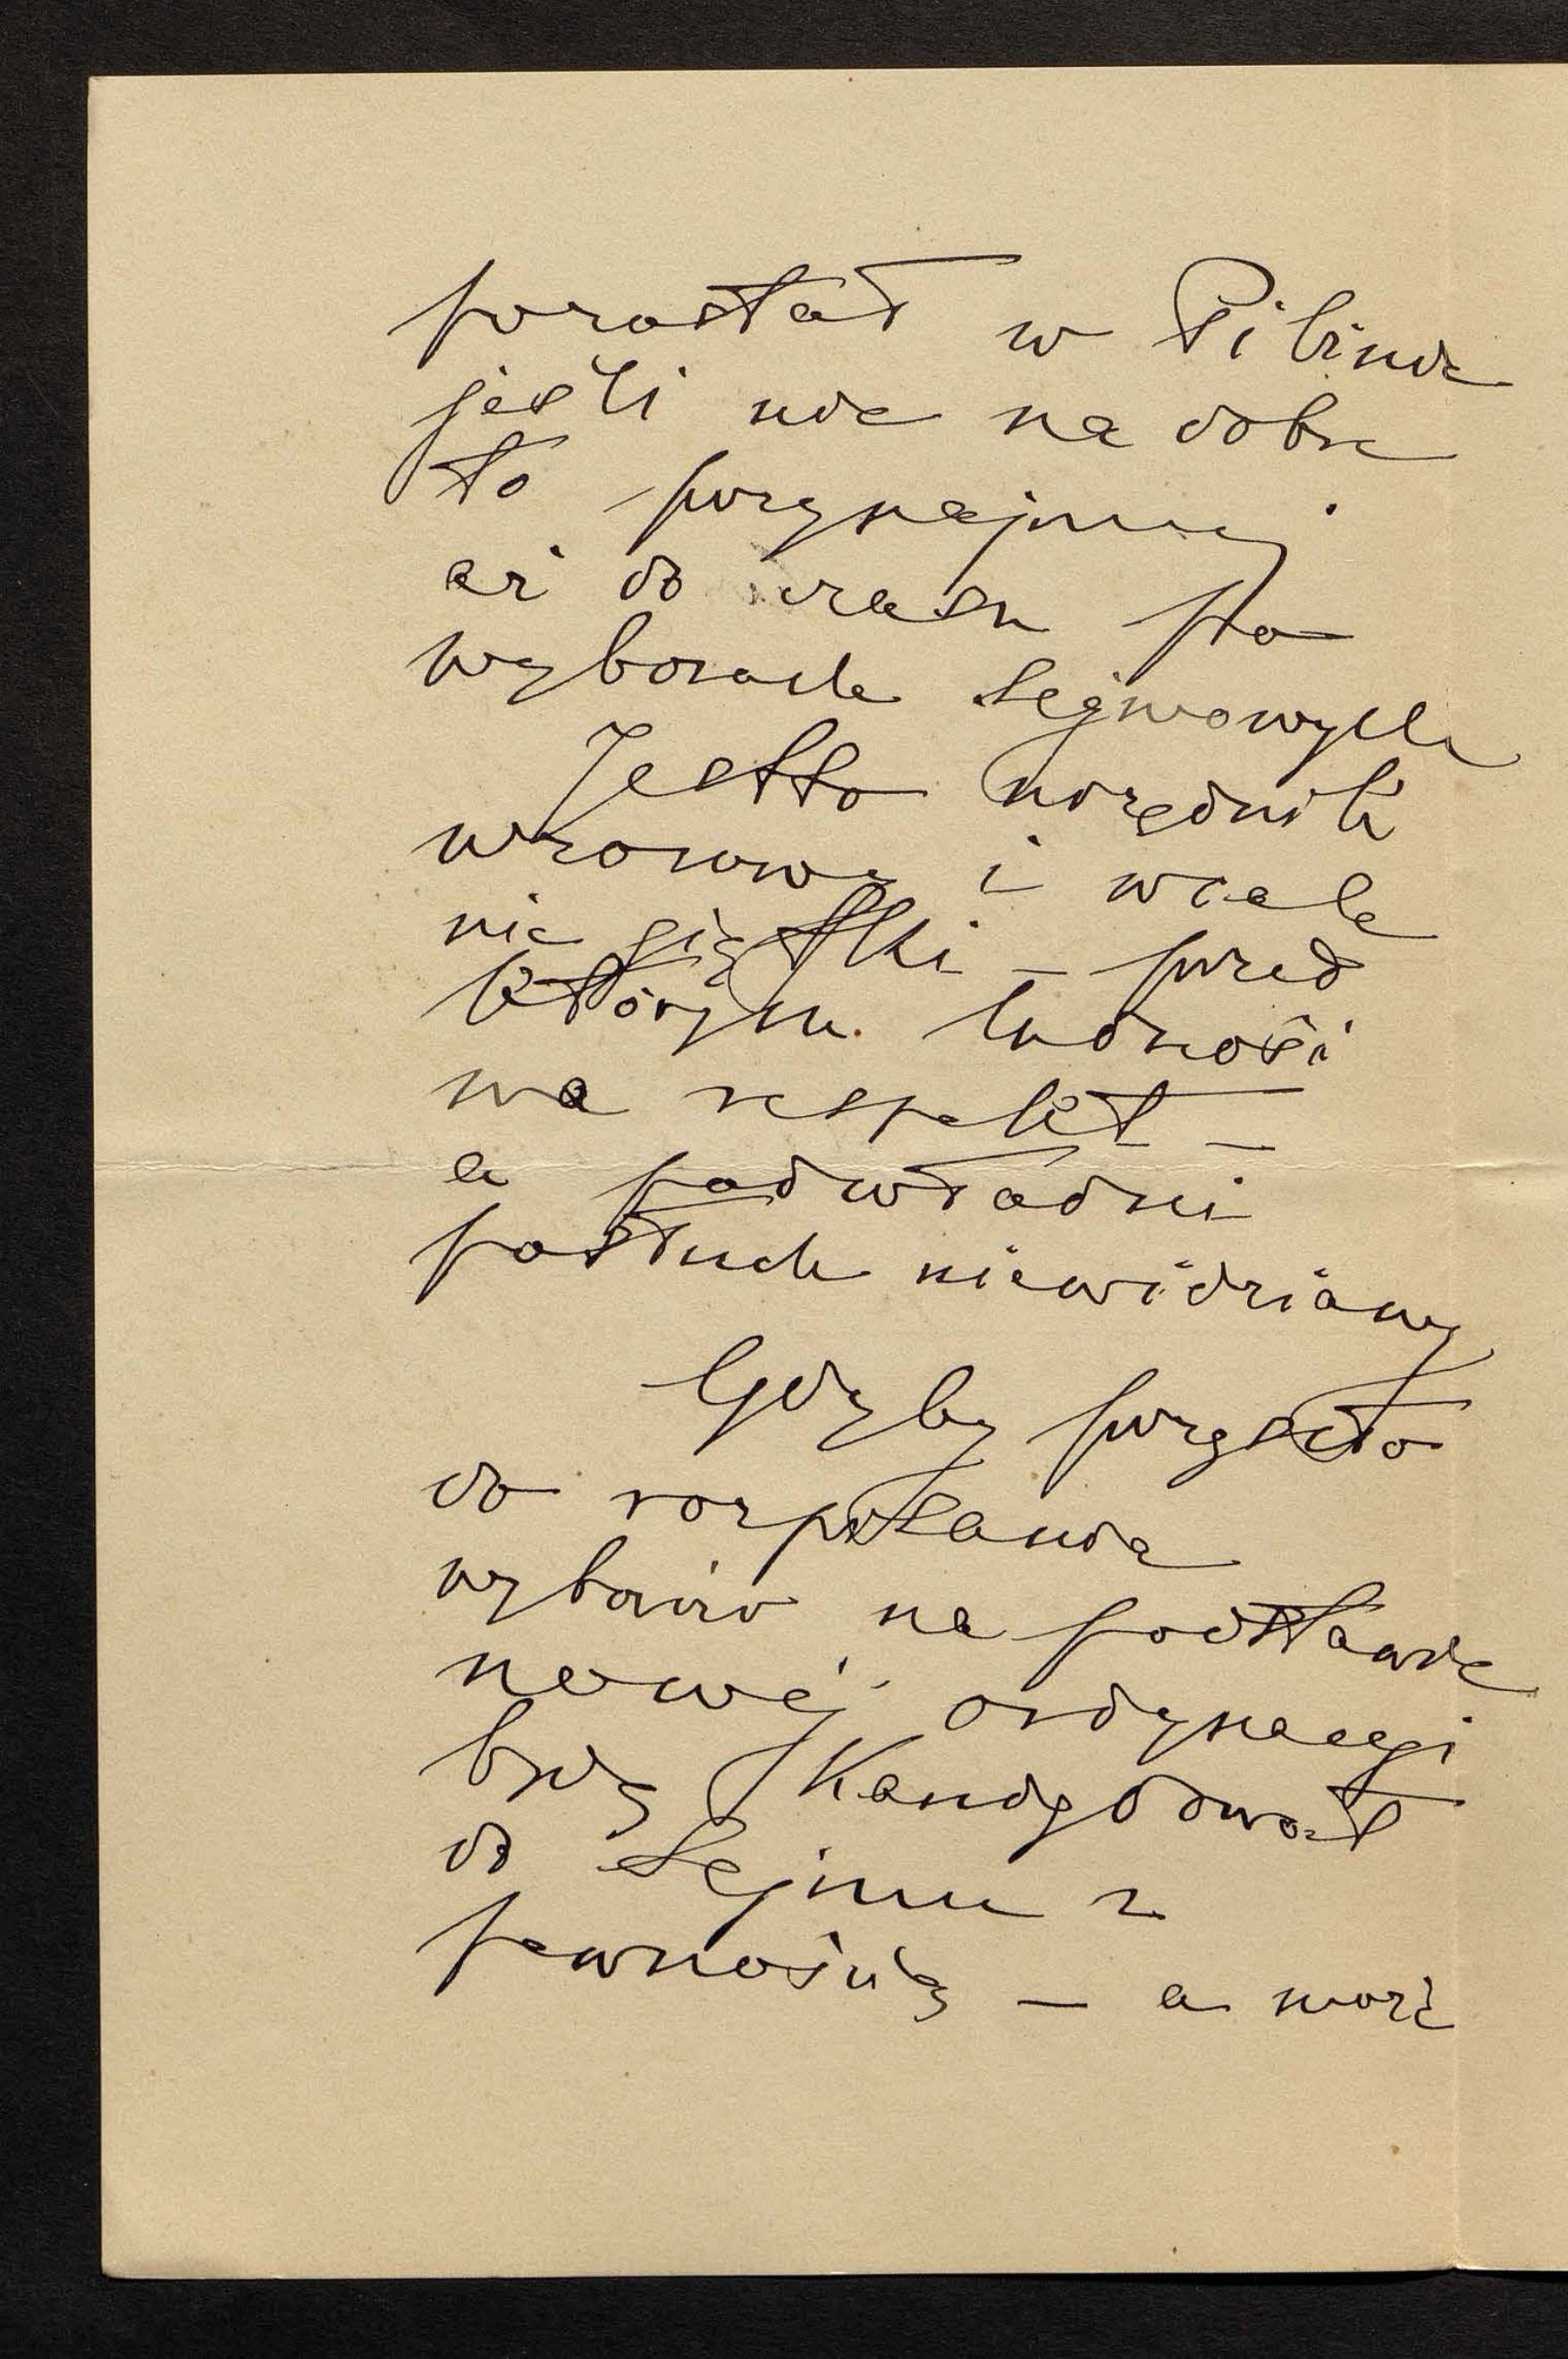 pozostał w Pilznie
jeśli nie na dobre
to przynajmniej
aż do czasu po
wyborach sejmowych
Jestto urzędnik
wzorowy i wcale
nie giętki — przed
którym ludność
ma respekt —
a podwładni
posłuch niewidziany
Gdyby przyszło
do rozpisania
wyborów na podstawie
nowéj ordynacyi
będę kandydował
do Sejmu z
pewnością — a może